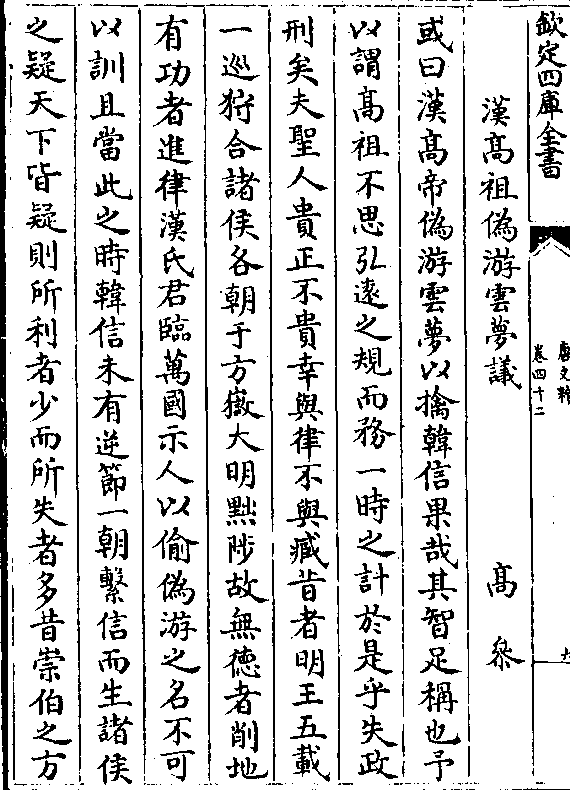 欽定四庫全書
唐文粹
卷四十二
九
漢髙祖偽游雲夢議　髙參
或曰漢髙帝偽游雲夢以擒韓信果哉其智足稱也予
以謂髙祖不思弘逺之規而務一時之計於是乎失政
刑矣夫聖人貴正不貴幸與律不與臧昔者明王五載
一巡狩合諸侯各朝于方嶽大明黜陟故無德者削地
有功者進律漢氏君臨萬國示人以偷偽游之名不可
以訓且當此之時韓信未有逆節一朝繫信而生諸侯
之疑天下皆疑則所利者少而所失者多昔崇伯之方